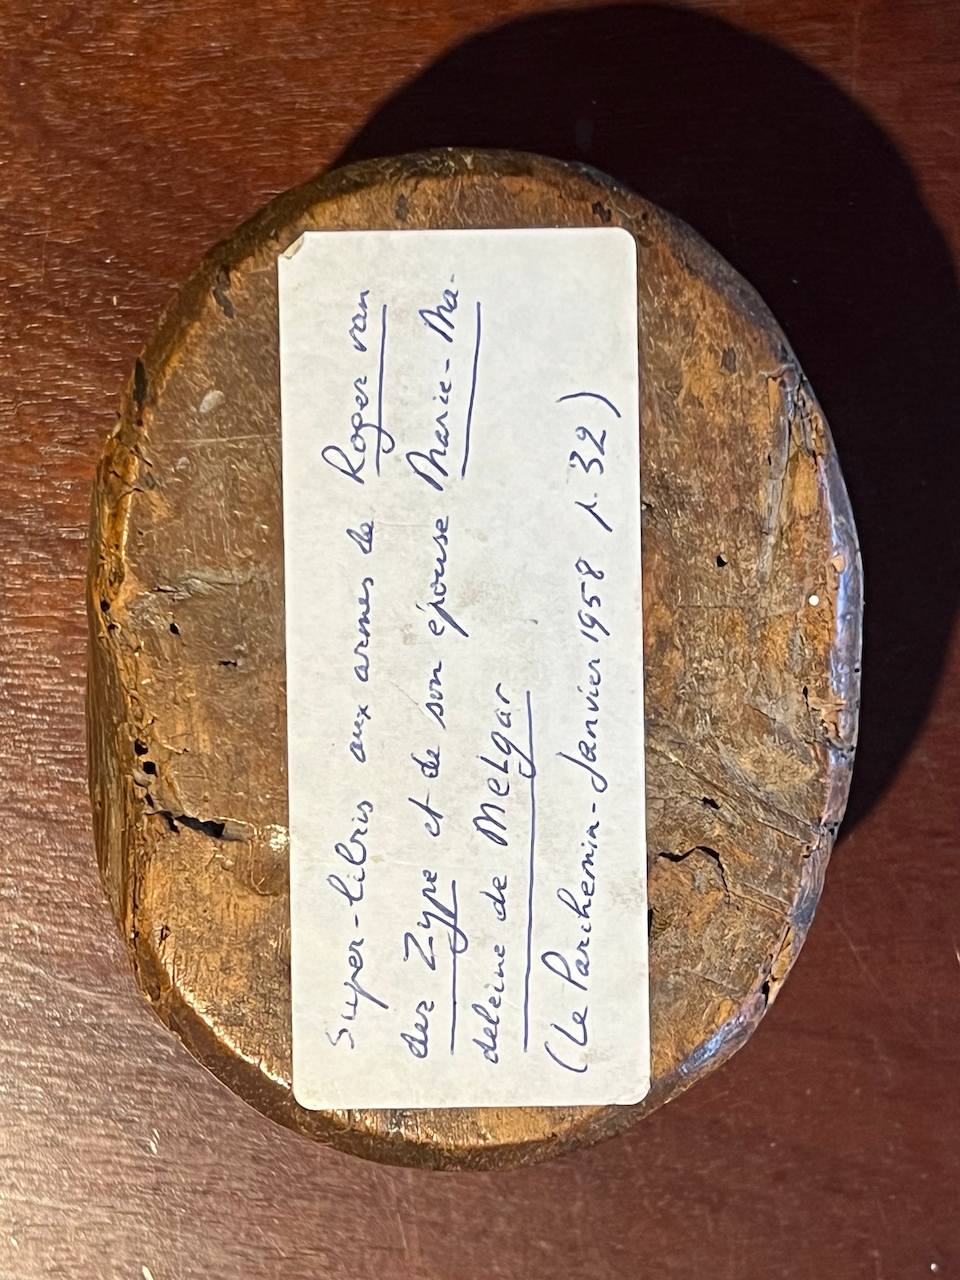 Super-libris aux armes de Roger van
der Zype et de son épouse Marie-Ma-
deleine de Melgar
(Le Parchemin - Janvier 1958 p. 32)